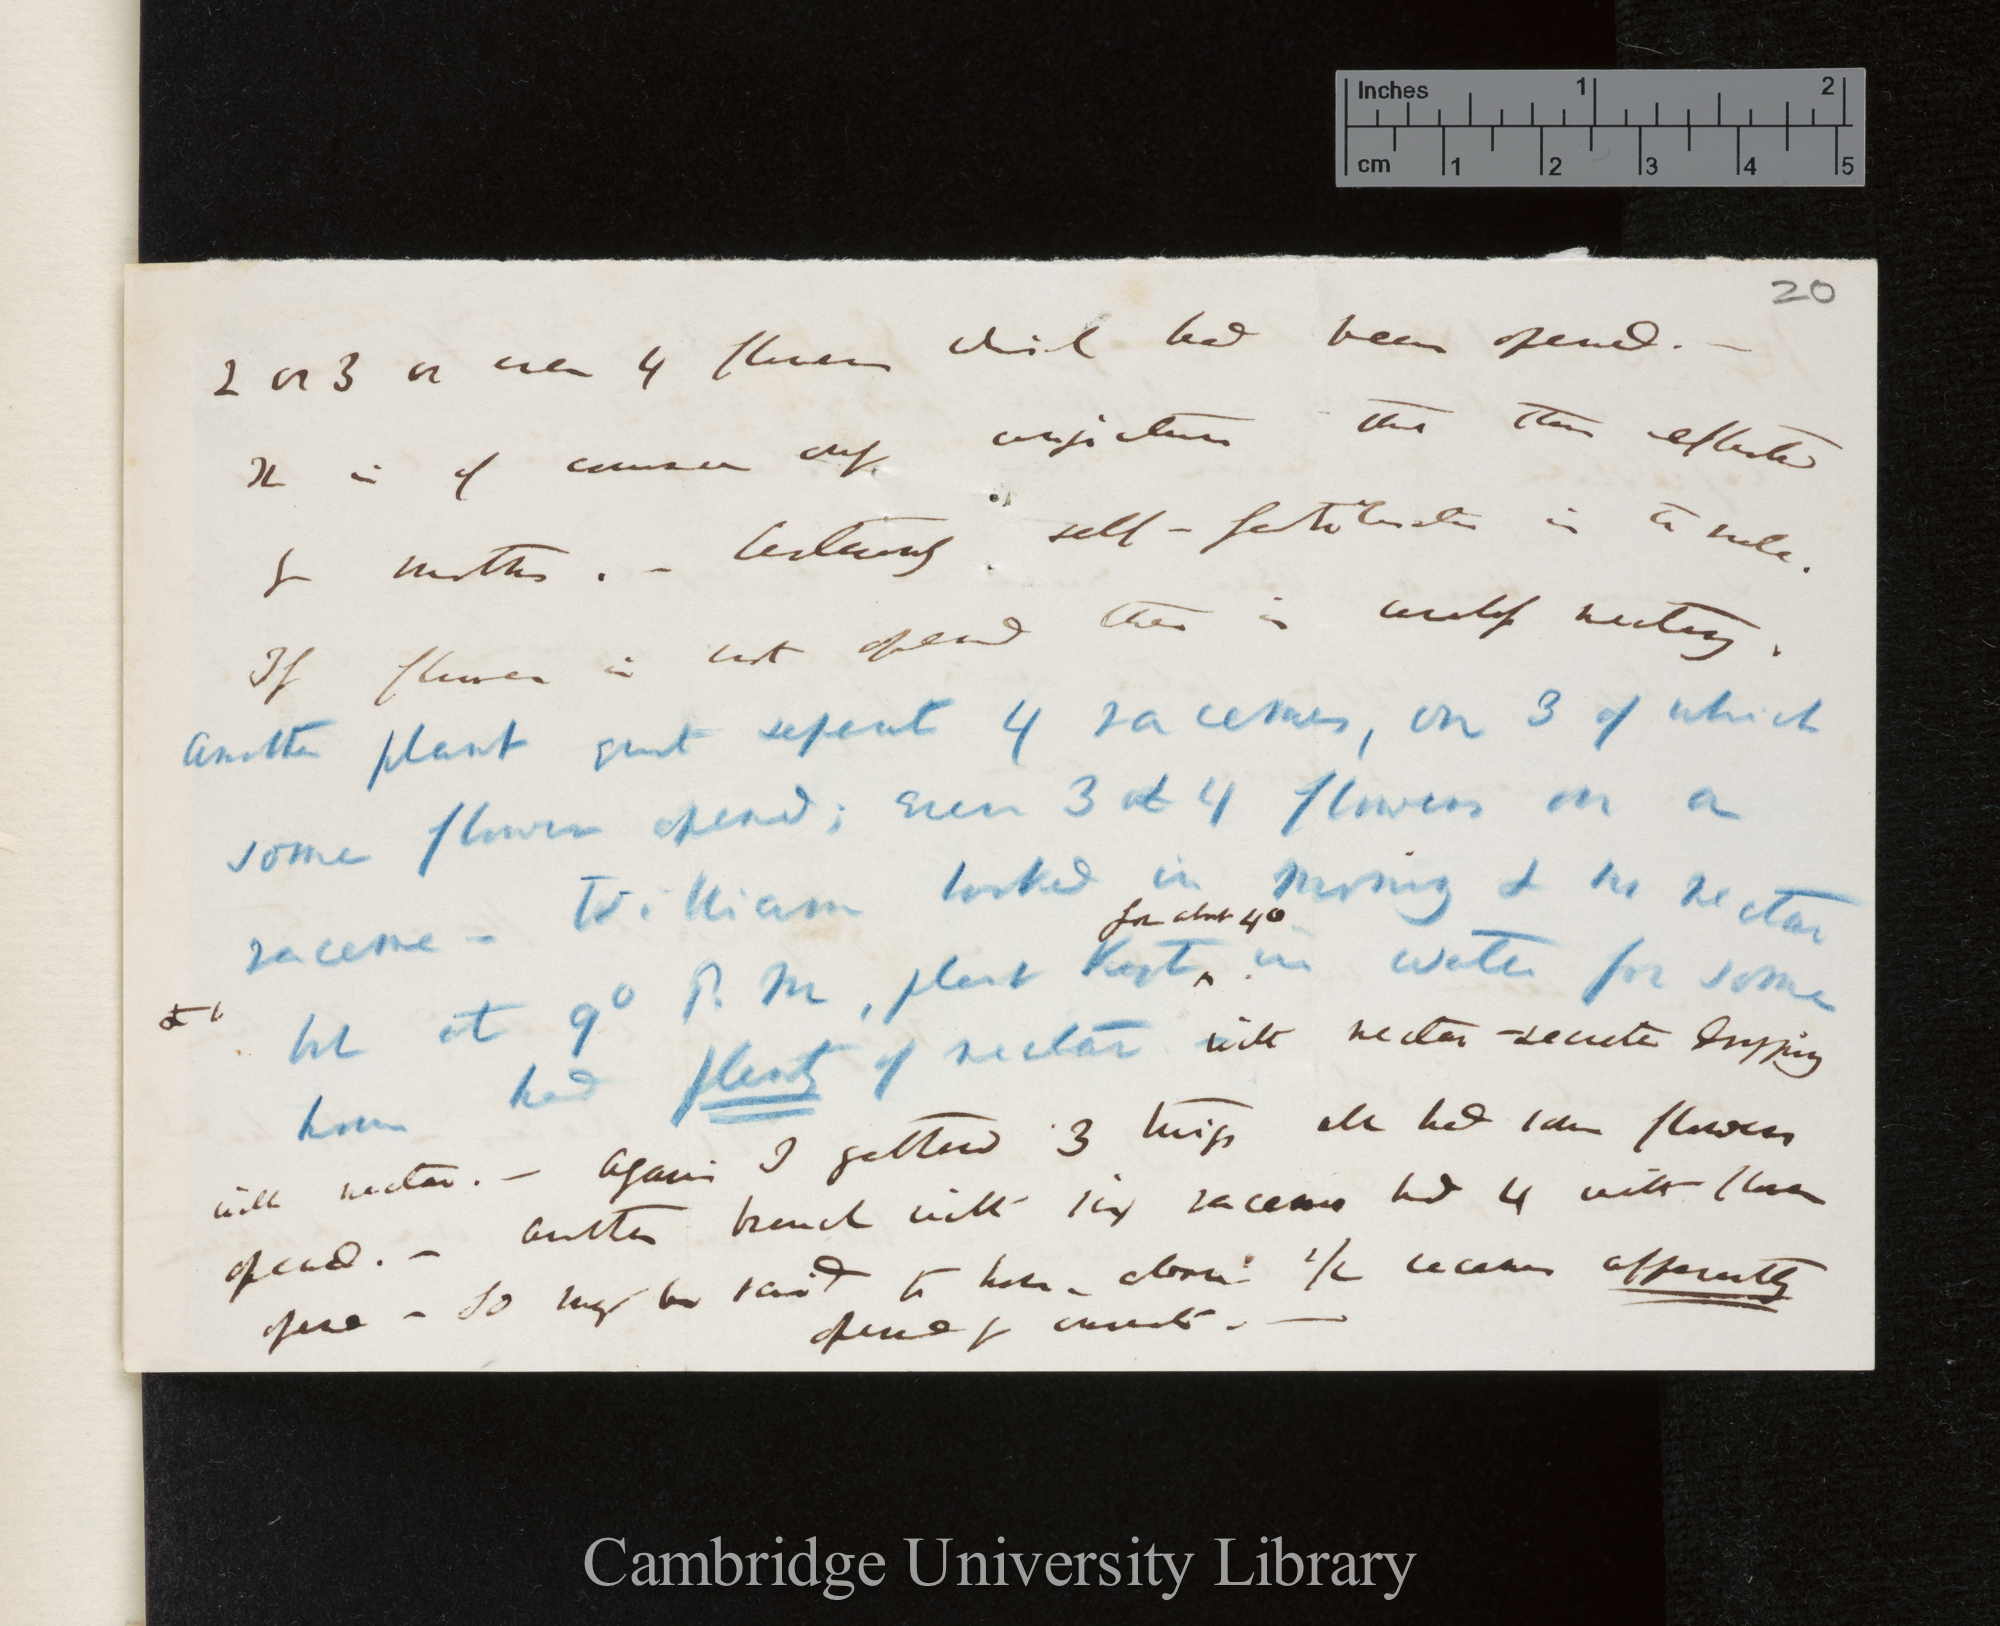 Inches 1 2
cm 1 2 3 4 5
20
2 or 3 or even 4 flowers which had been opened. —
It is of course only conjecture that this effected
by moths. — Certainly self-fertilisation is the rule.
If flower is not opened there is hardly nectary.
Another plant sent 4 racemes, on 3 of which
some flowers opened; even 3 & 4 flowers on a
raceme — William looked in morning & no nectar
for about 4°
but at 9° P.M, plant kept ^ in water for some
hours had plenty of nectar with nectar-secreter dripping
with nectar. — Again I gathered 3 twigs all had some flowers
opened. — Another branch with six racemes had 4 with flower
open — So may be said to have about 1/2 racemes apparently
opened by insects. —
Cambridge University Library